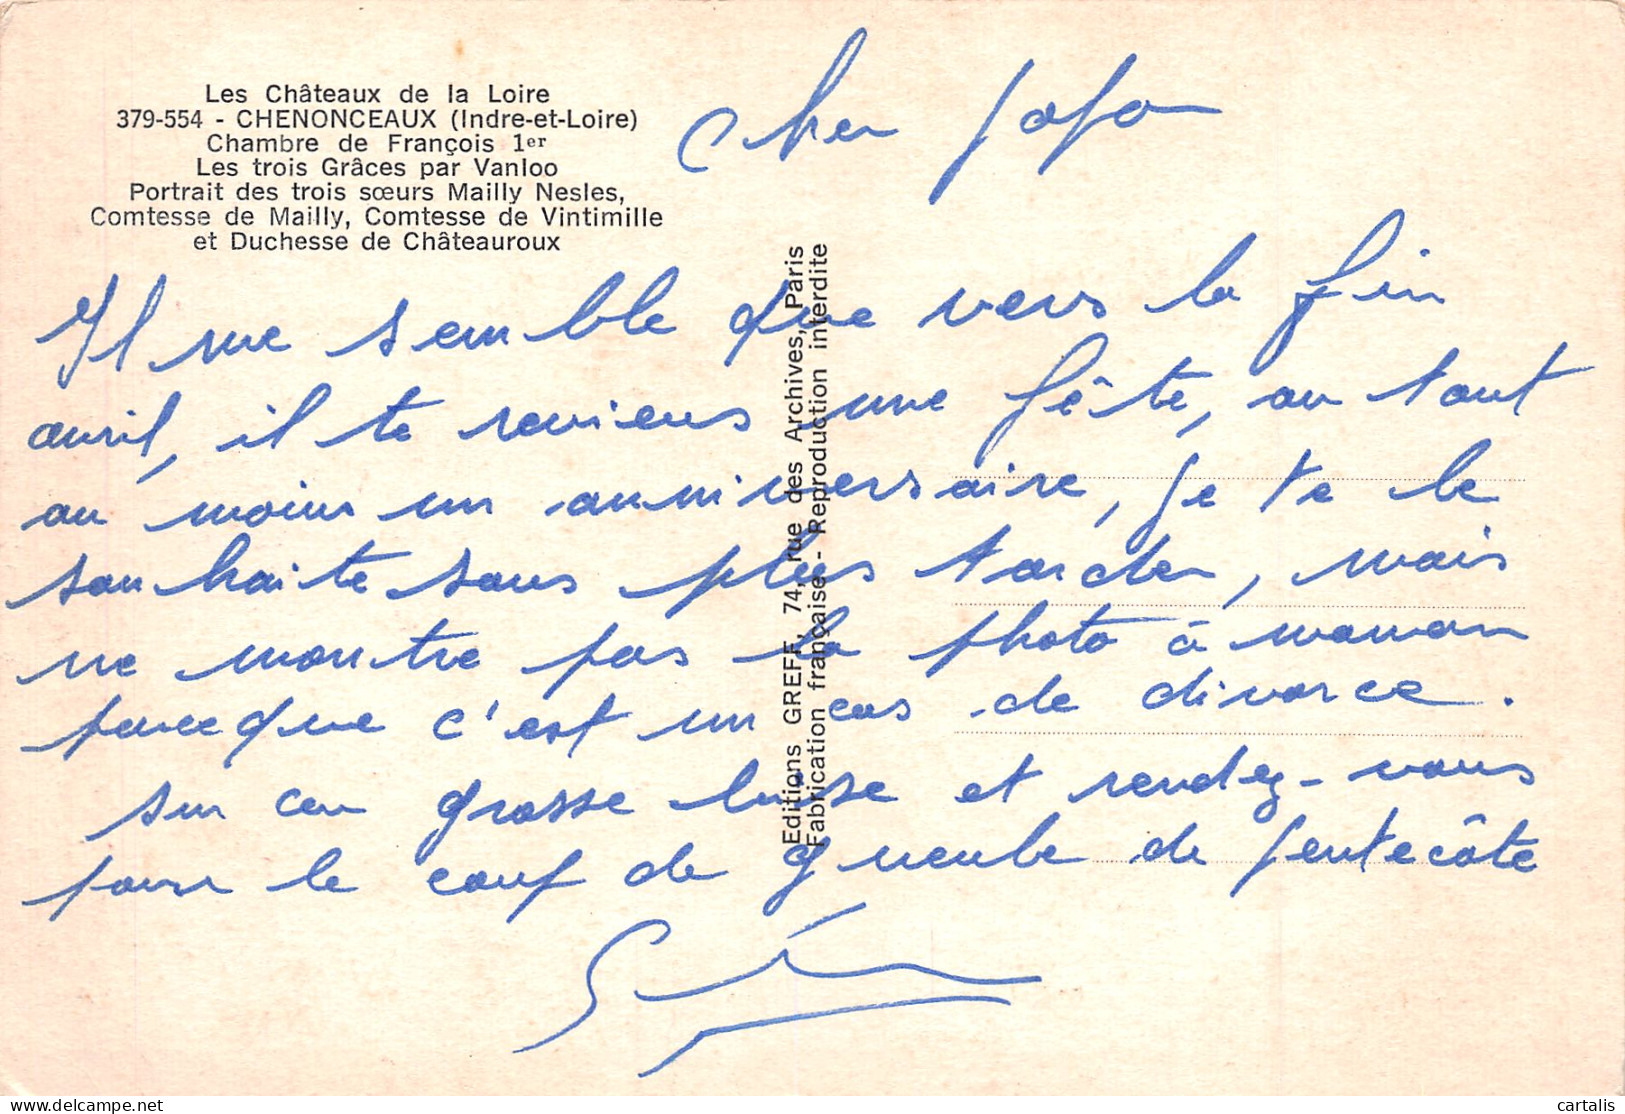 Les Châteaux de la Loire
379-554 - CHENONCEAUX (Indre-et-Loire)
Chambre de François 1er
Les trois Grâces par Vanloo
Portrait des trois sœurs Mailly Nesles,
Comtesse de Mailly, Comtesse de Vintimille
et Duchesse de Châteauroux
Editions GREFF, 74, rue des Archives, Paris
Fabrication française - Reproduction interdite
Cher
Il me semble que vers la fin
avril, il te reviens une fête, ou tout
au moins un anniversaire, je te le
souhaite sans plus tarder, mais
ne montre pas la photo à maman
parceque c'est un cas de divorce.
sur ce grosse bise et rendez-vous
pour le coup de gueule de pentecôte
cartalis